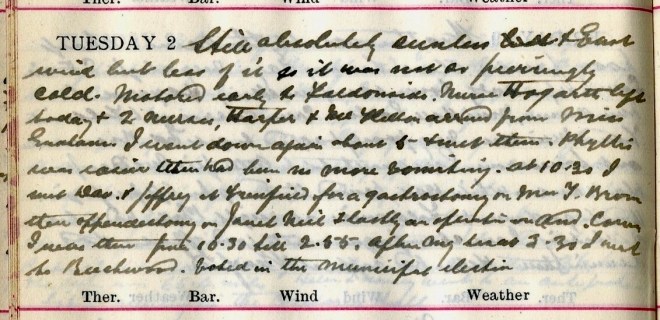 Ther. Bar. Wind Weather
TUESDAY 2 Still absolutely sunless & East
wind but less of it so it was not so piercingly
cold. Motored early to Nurse Hogarth left
today & 2 nurses, Harper & arrived from Miss
I went down again about 5 & met them. Phyllis
was easier there had been no more vomiting. At 10.30 I
met Dav. & Jeffrey at for a gastrostomy on Mrs T. Brown
then appendectomy on Janet Neil & lastly an operation on And.
I was there from 10.30 till 2.55. After my lunch 3.30 I went
to Beechwood. Voted in the municipal election
Ther. Bar. Wind Weather